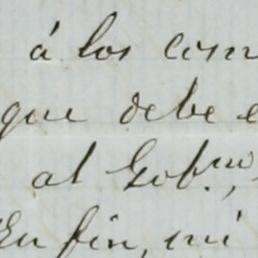 á los com
que debe e
al Gob.no,
En fin, mi